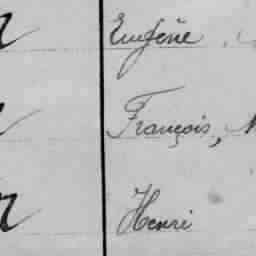 Eugène
François,
Henri